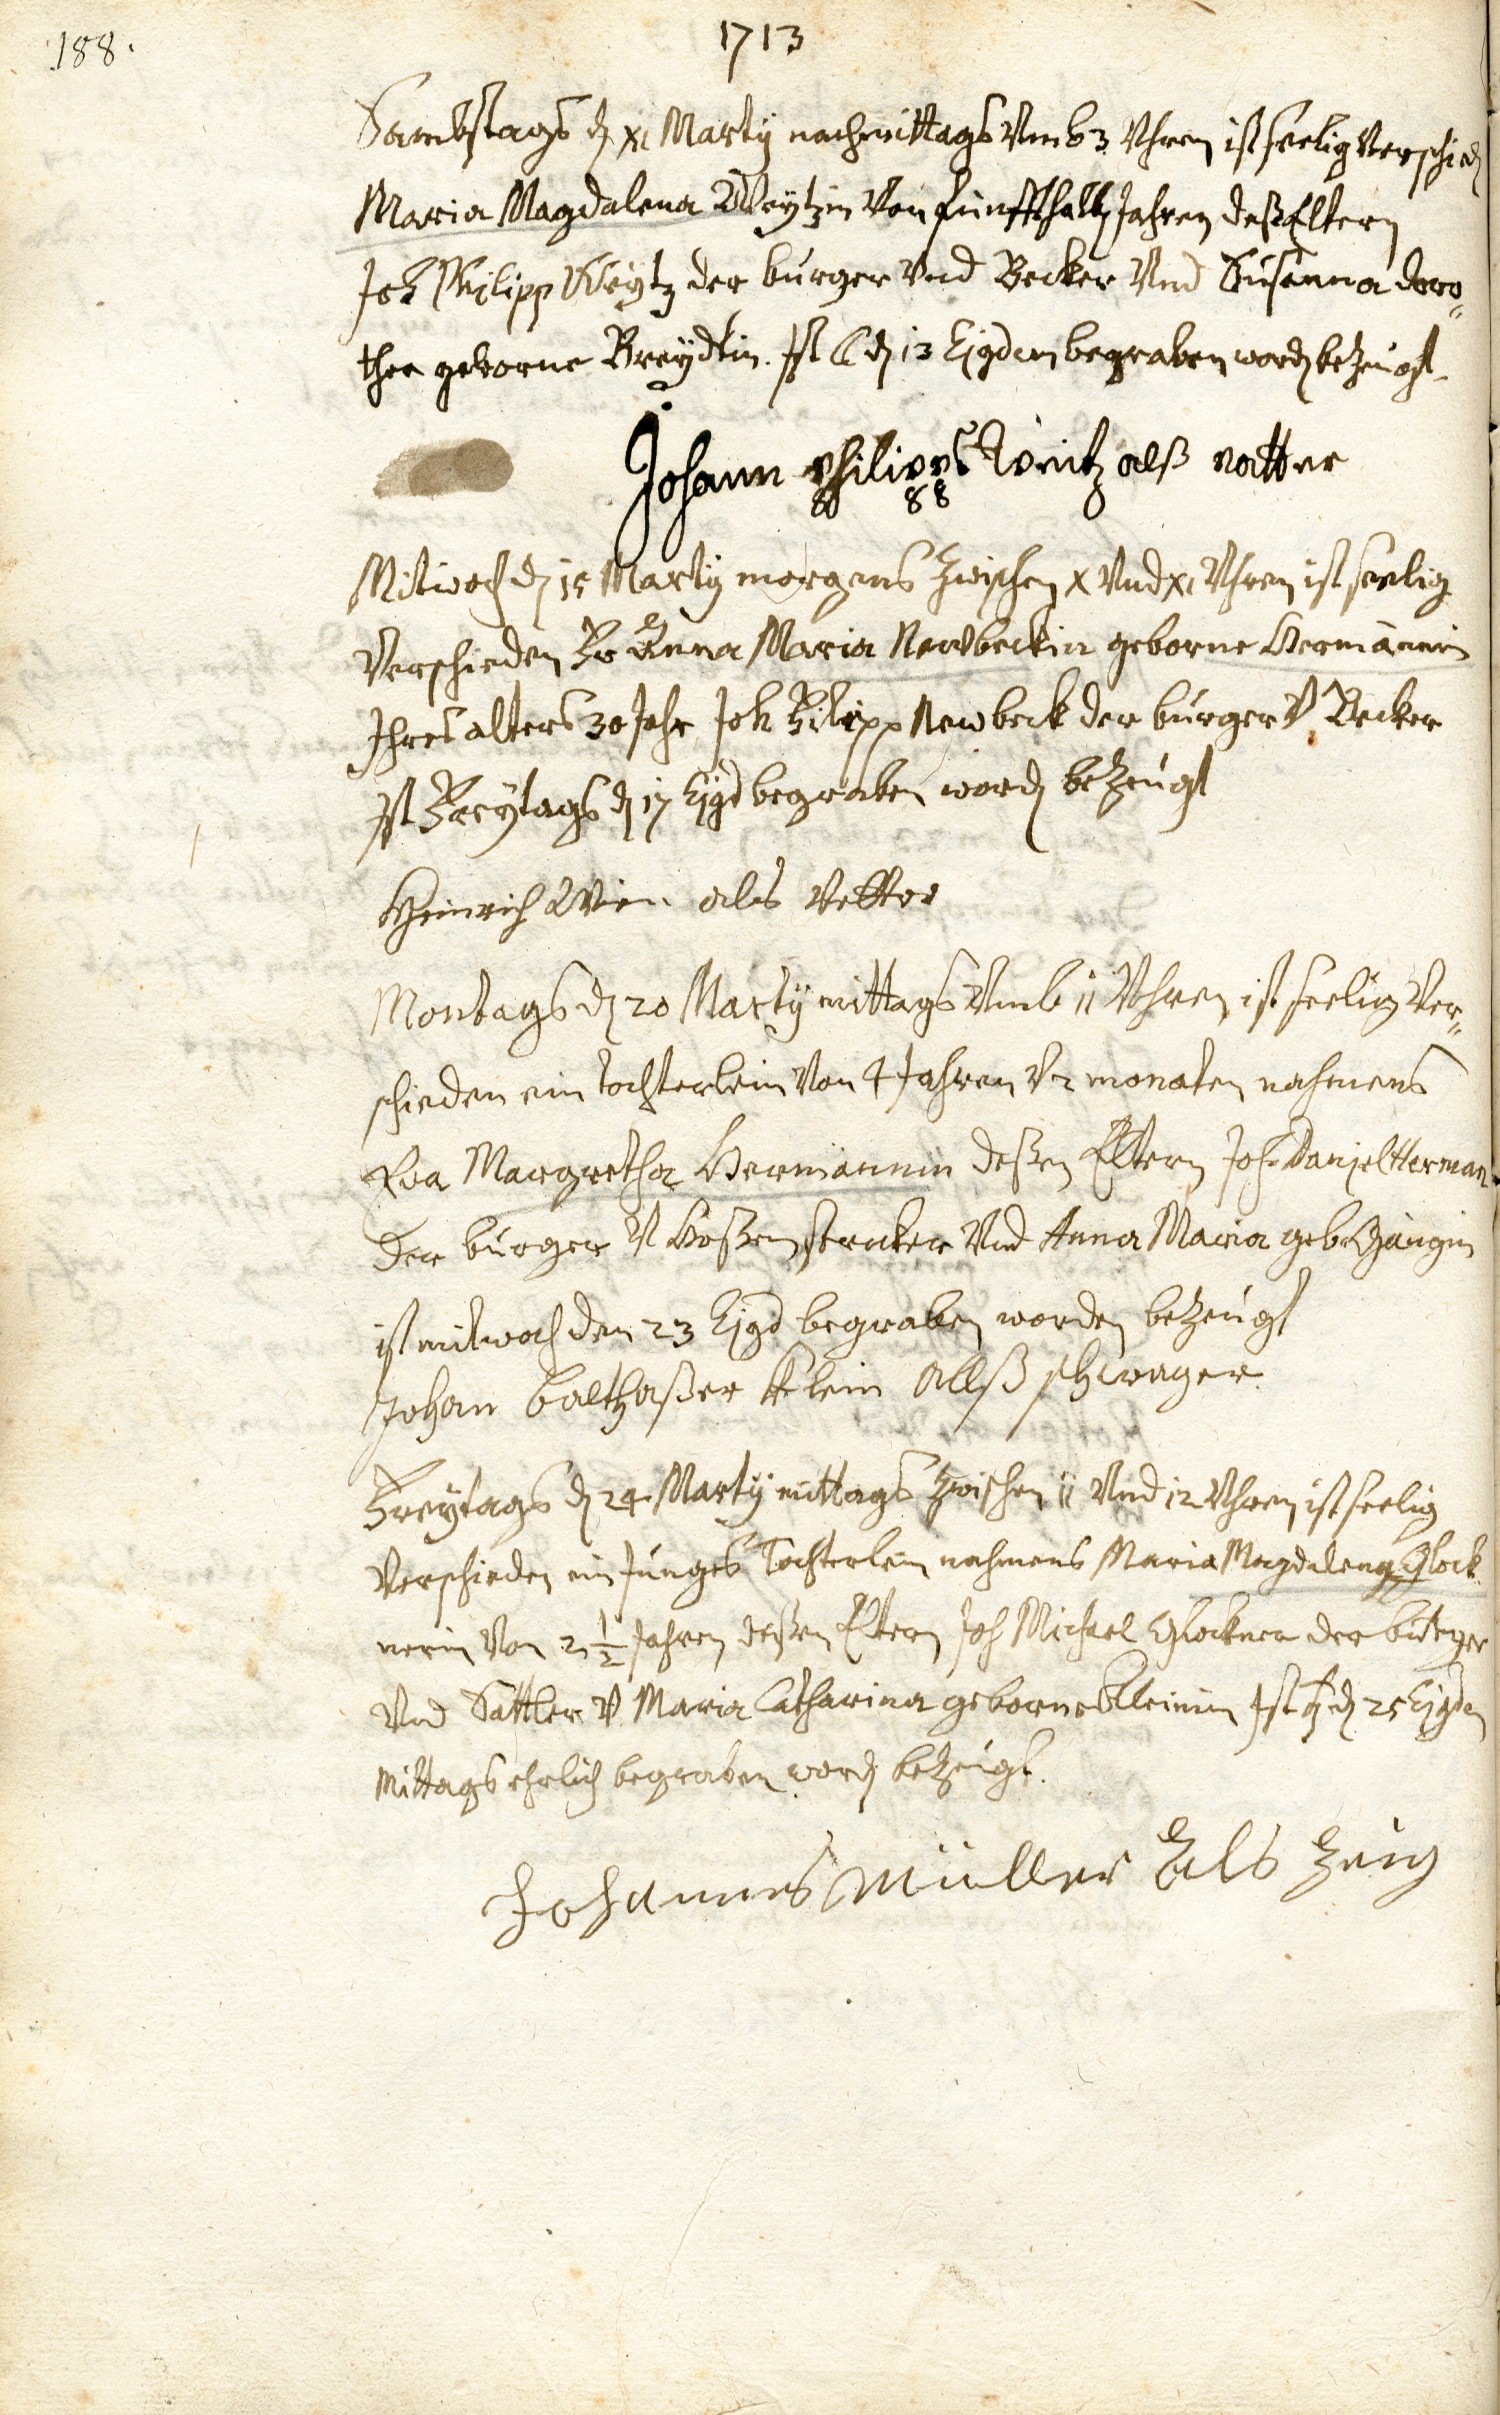 188.
1713
Sambstags d. XI Martÿ nachmittags Vmb 3 Vhren ist seelig Verschied
Maria Magdalena Weytzin Von fünffthalb Jahren deß Eltern
Joh Philipp Weytz der burger Vnd Becker Vnd Susanna doro„
thea geborne Breÿdtin. Ist ☾ d. 13 Ejgdem begraben word bezeugt
Johann philipps Weitz alß vatter
Mitwoch d. 15 Martÿ morgens Zwischen X Vnd XI Vhren ist seelig
Verschieden Fr Anna Maria Newbeckin geborne Hermännin
Ihres alters 30 Jahr Joh Filipp Newbeck der burger V Becker
Ist Freÿtags d. 17 Ejgd begraben word bezeugt
Heinrich als Vetter
Montags d. 20 Martÿ mittags Vmb 11 Vhren ist seelig Ver„
schieden ein Tochterlein Von 4 Jahren V 2 monaten nahmens
Eva Margretha Hermännin deßen Eltern Joh Danjel Herman
der burger V Hoßenstricker Vnd Anna Maria geb
ist mitwoch den 23 Ejgd begraben worden bezeugt
Johan balthaßer Klein allß schwager
Freytags d. 24 Martÿ mittags Zwischen 11 Vnd 12 Vhren ist seelig
Verschieden ein Junges Tochterlein nahmens Maria Magdalena Glock
nerin Von 2 1/2 Jahren deßen Eltern Joh Michael Glockner der burger
Vnd Sattler V Maria Catharina geborne Kleinin Ist ♄ d. 25 Ejgden
Mittags ehrlich begraben word bezeugt.
Johannes Müller Als Zeug